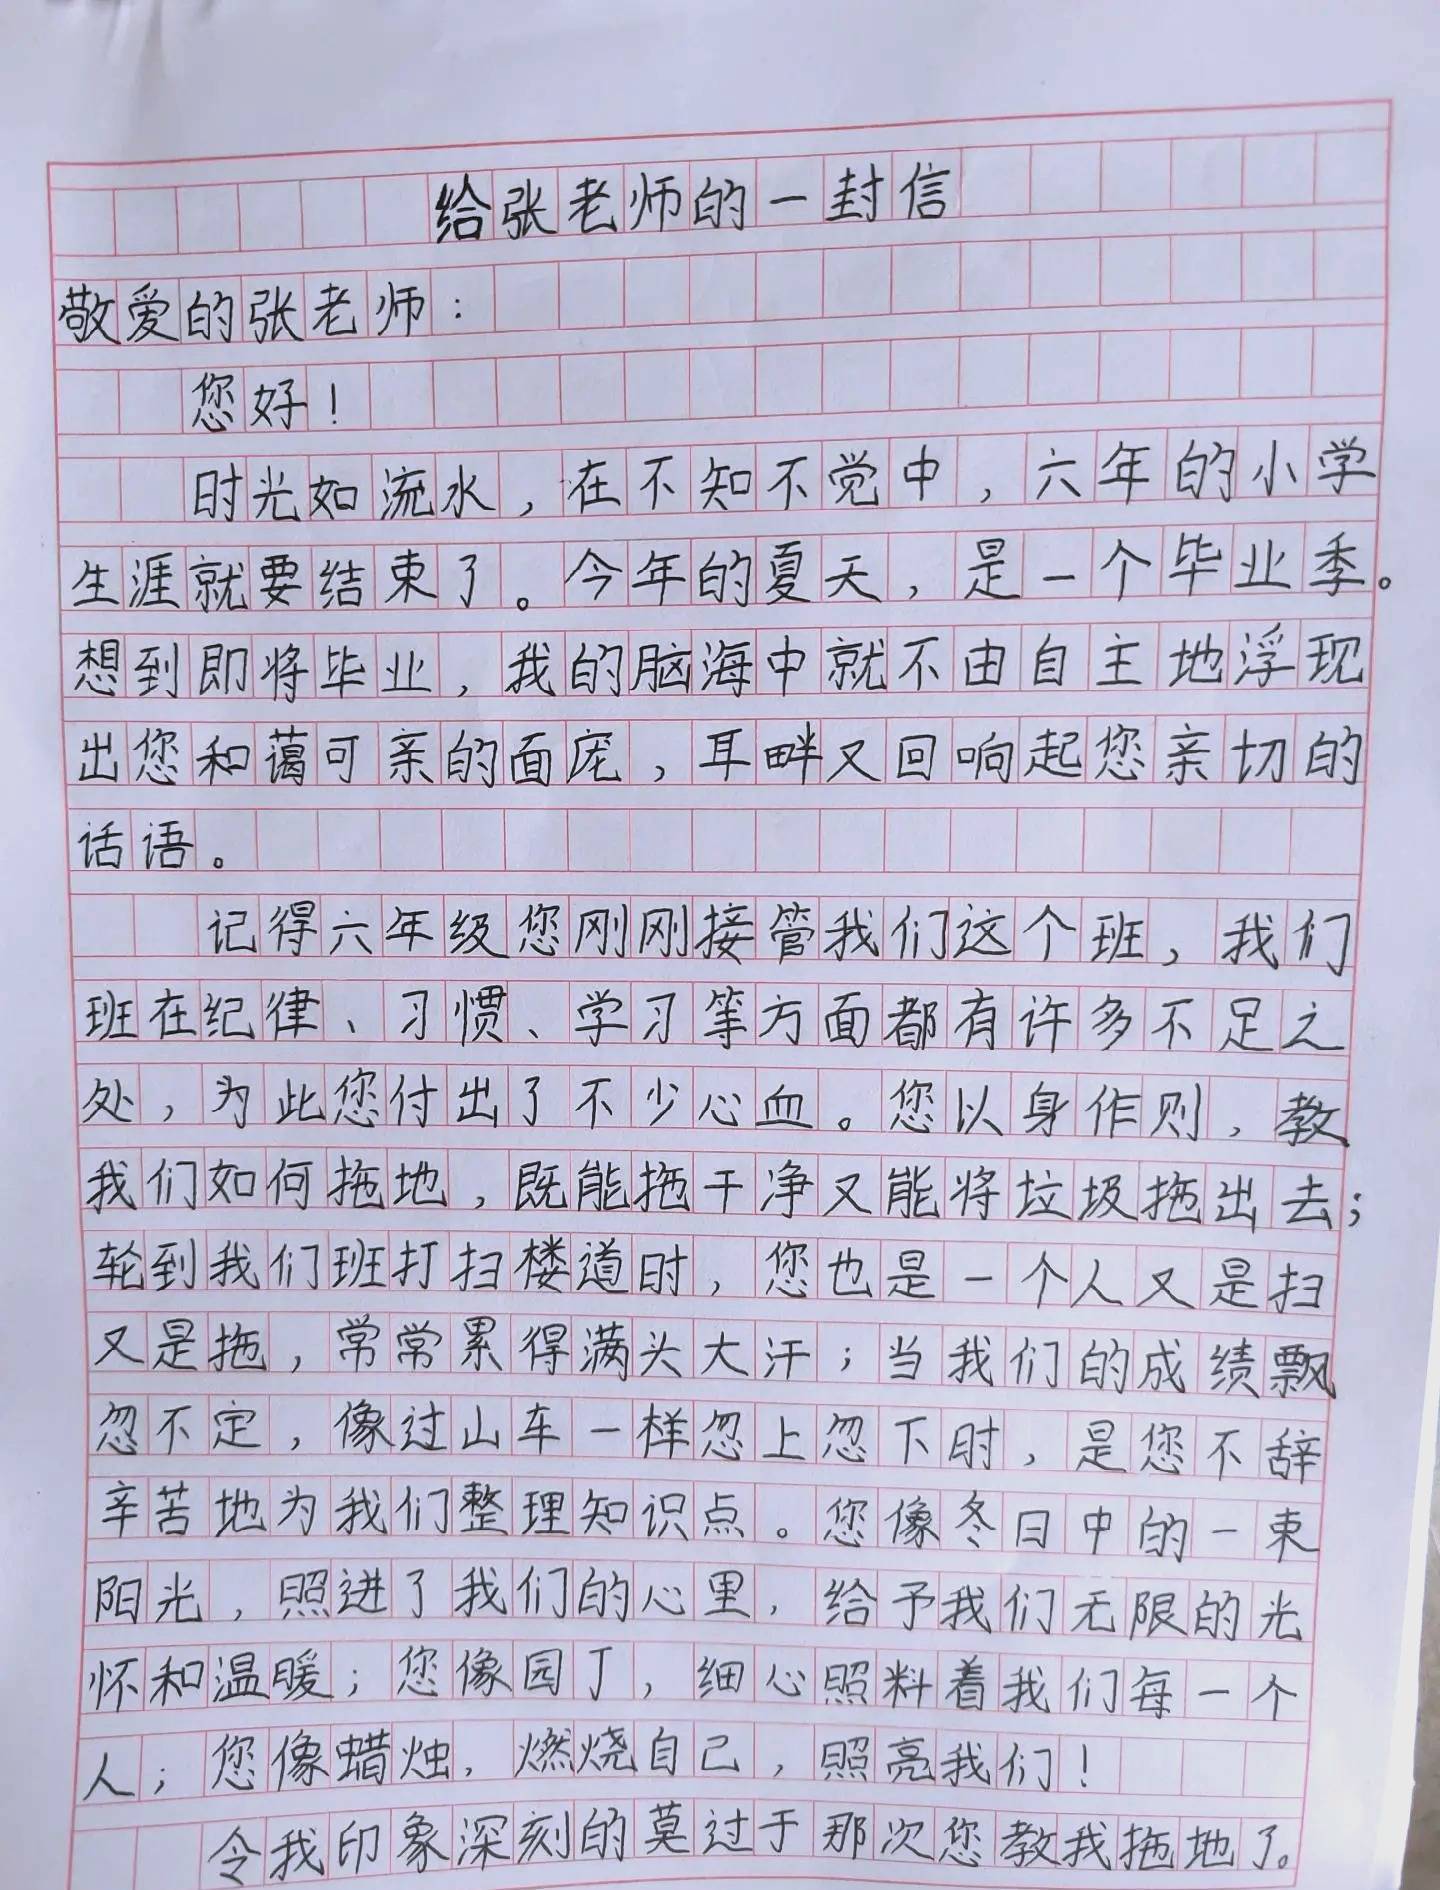 给张老师的一封信
敬爱的张老师：
您好！
时光如流水，在不知不觉中，六年的小学
生涯就要结束了。今年的夏天，是一个毕业季。
想到即将毕业，我的脑海中就不由自主地浮现
出您和蔼可亲的面庞，耳畔又回响起您亲切的
话语。
记得六年级您刚刚接管我们这个班，我们
班在纪律、习惯、学习等方面都有许多不足之
处，为此您付出了不少心血。您以身作则，教
我们如何拖地，既能拖干净又能将垃圾拖出去；
轮到我们班打扫楼道时，您也是一个人又是扫
又是拖，常常累得满头大汗；当我们的成绩飘
忽不定，像过山车一样忽上忽下时，是您不辞
辛苦地为我们整理知识点。您像冬日中的一束
阳光，照进了我们的心里，给予我们无限的光
怀和温暖；您像园丁，细心照料着我们每一个
人；您像蜡烛，燃烧自己，照亮我们！
令我印象深刻的莫过于那次您教我拖地了。